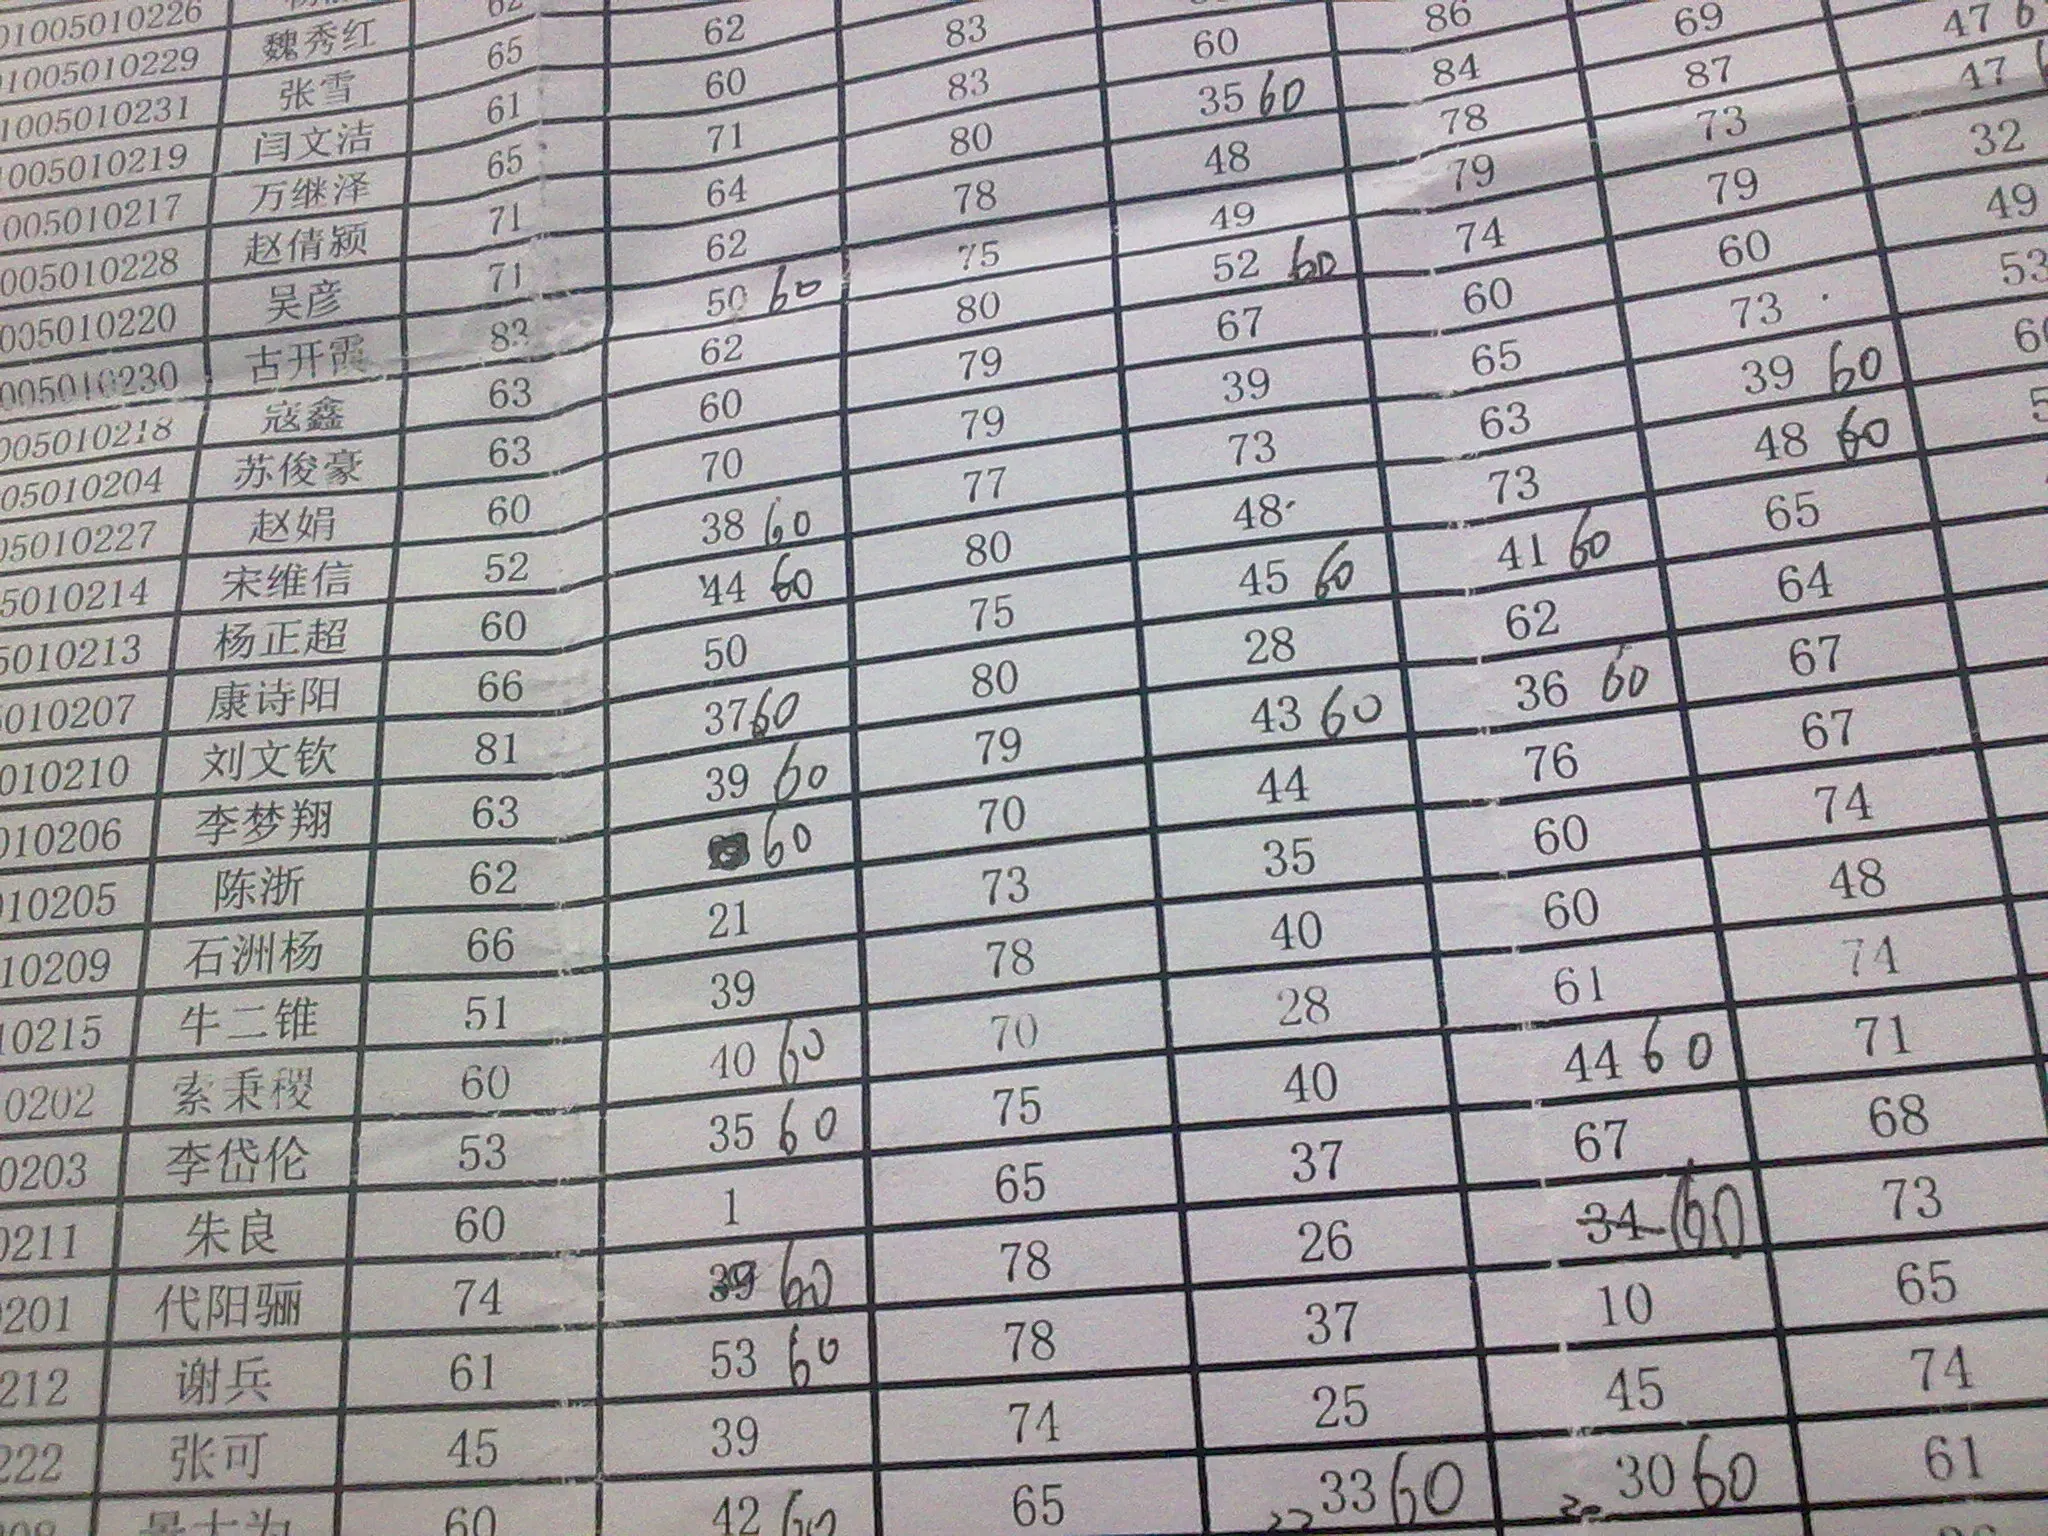 01005010226
1005010229 魏秀红 62
1005010231 张雪 65 62
1005010219 闫文洁 61 60 83
005010217 万继泽 65 71 83 60 86
005010228 赵倩颖 71 64 80 35 60 84 69 47
005010220 吴彦 71 62 78 48 78 87 47
005010230 古开霞 83 50 60 75 49 79 73 32
005010218 寇鑫 63 62 80 52 60 74 79 49
05010204 苏俊豪 63 60 79 67 60 60 53
05010227 赵娟 60 70 79 39 65 73
5010214 宋维信 52 38 60 77 73 63 39 60
5010213 杨正超 60 44 60 80 48 73 48 60
010207 康诗阳 66 50 75 45 60 41 60 65
010210 刘文钦 81 37 60 80 28 62 64
010206 李梦翔 63 39 60 79 43 60 36 60 67
10205 陈浙 62 60 70 44 76 67
10209 石洲杨 66 21 73 35 60 74
10215 牛二锥 51 39 78 40 60 48
0202 索秉稷 60 40 60 70 28 61 74
0203 李岱伦 53 35 60 75 40 44 60 71
0211 朱良 60 1 65 37 67 68
201 代阳骊 74 39 60 78 26 34 60 73
212 谢兵 61 53 60 78 37 10 65
222 张可 45 39 74 25 45 74
60 42 60 65 33 60 30 60 61